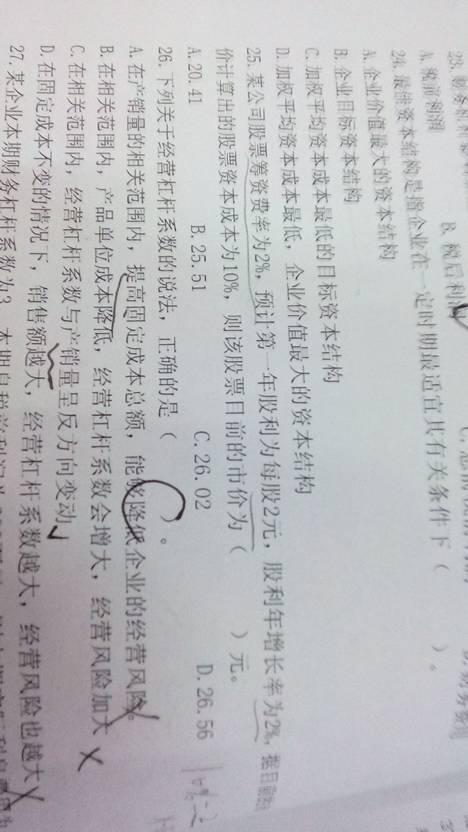 A.
B.税后利润
24.最佳资本结构是指企业在一定时期最适宜其有关条件下（ ）。
A.企业价值最大的资本结构
B.企业目标资本结构
C.加权平均资本成本最低的目标资本结构
D.加权平均资本成本最低，企业价值最大的资本结构
25.某公司股票筹资费率为2%，预计第一年股利为每股2元，股利年增长率为2%，据目前的
价计算出的股票资本成本为10%，则该股票目前的市价为（ ）元。
A.20.41 B.25.51 C.26.02 D.26.56
26.下列关于经营杠杆系数的说法，正确的是（ ）。
A.在产销量的相关范围内，提高固定成本总额，能够降低企业的经营风险
B.在相关范围内，产品单位成本降低，经营杠杆系数会增大，经营风险加大
C.在相关范围内，经营杠杆系数与产销量呈反方向变动
D.在固定成本不变的情况下，销售额越大，经营杠杆系数越大，经营风险也越大
27.某企业本期财务杠杆系数为3，本期息税前利润为